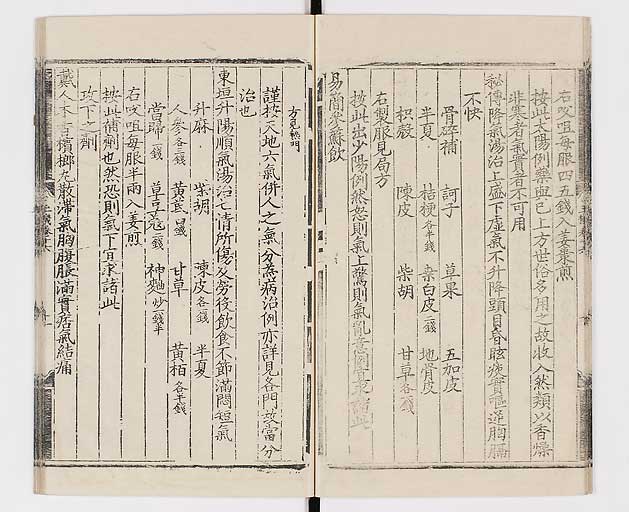 右㕮咀每服四五錢入姜棗煎
按此太陽例藥與已上方世俗多用之故收入然類以香燥
非寒者氣實者不可用
秘傳降氣湯治上盛下虛氣不升降頭目昏眩痰實嘔逆胸膈
不快
骨碎補 訶子 草果 五加皮
半夏 桔梗各半錢 桒白皮二錢 地骨皮
枳殼 陳皮 柴胡 甘草各一錢
右製服見局方
按此出少陽例然怒則氣上驚則氣亂意
易簡參蘇飲
方見熱門
謹按天地六氣併人之氣分爲病治例亦詳見各門妓當分
治也
東垣升陽順氣湯治七情所傷及勞役飲食不節滿悶短氣
升麻 柴胡 陳皮各一錢 半夏
人參各二錢 黃芪四錢 甘草 黃栢各半錢
當歸一錢 草豆蔲一錢 神麯炒一錢半
右㕮咀每服半兩入姜煎
按此備劑也然恐則氣下宜求諸此
攻下之劑
戴人木香檳榔丸散滯氣胸腹脹滿實痞氣結痛